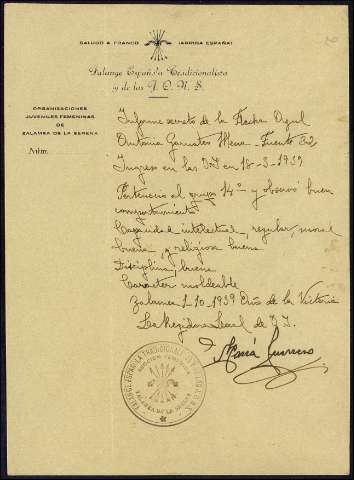 SALUDO A FRANCO ¡ARRIBA ESPAÑA!
Falange Española Tradicionalista
y de las J. O. N. S.
ORGANIZACIONES
JUVENILES FEMENINAS
DE
ZALAMEA DE LA SERENA
Núm.
Informe secreto de la Flecha Azul
Antonia Mena - Fuente 32
Ingreso en las O.J en 18-3-1939
Pertenecio al grupo 14º y observó buen
comportamiento
Capacidad intelectual, regular, moral
buena, y religiosa buena
Disciplina, buena
Caracter moldeable
Zalamea 1-10-1939 Año de la Victoria
La Regidora Local de O.J.
María Guerrero
FALANGE ESPAÑOLA TRADICIONALISTA Y DE LAS J.O.N.S.
SECCION FEMENINA
ZALAMEA DE LA SERENA